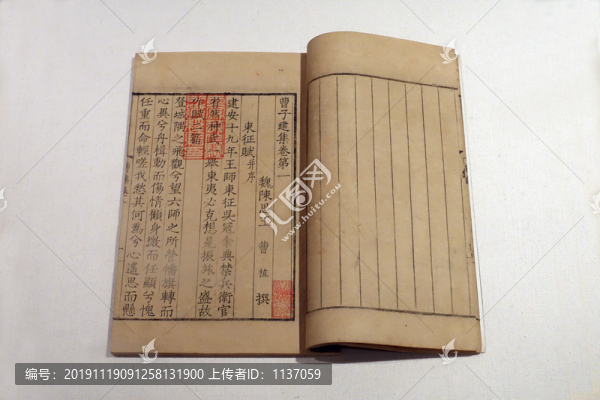 曹子建集卷第一
魏陳思王 曹植 撰
東征賦 并序
建安十九年王師東征吳寇余典禁兵衛官
省然神武一舉東夷必克想見振旅之盛故
作賦一篇
登城隅之飛觀兮望六師之所營幡旗轉而
心異兮舟楫動而傷情顧身微而任顯兮愧
任重而命輕嗟我愁其何為兮心遙思而懸
汇图网
www.huitu.com
编号：20191119091258131900 上传者ID：1137059